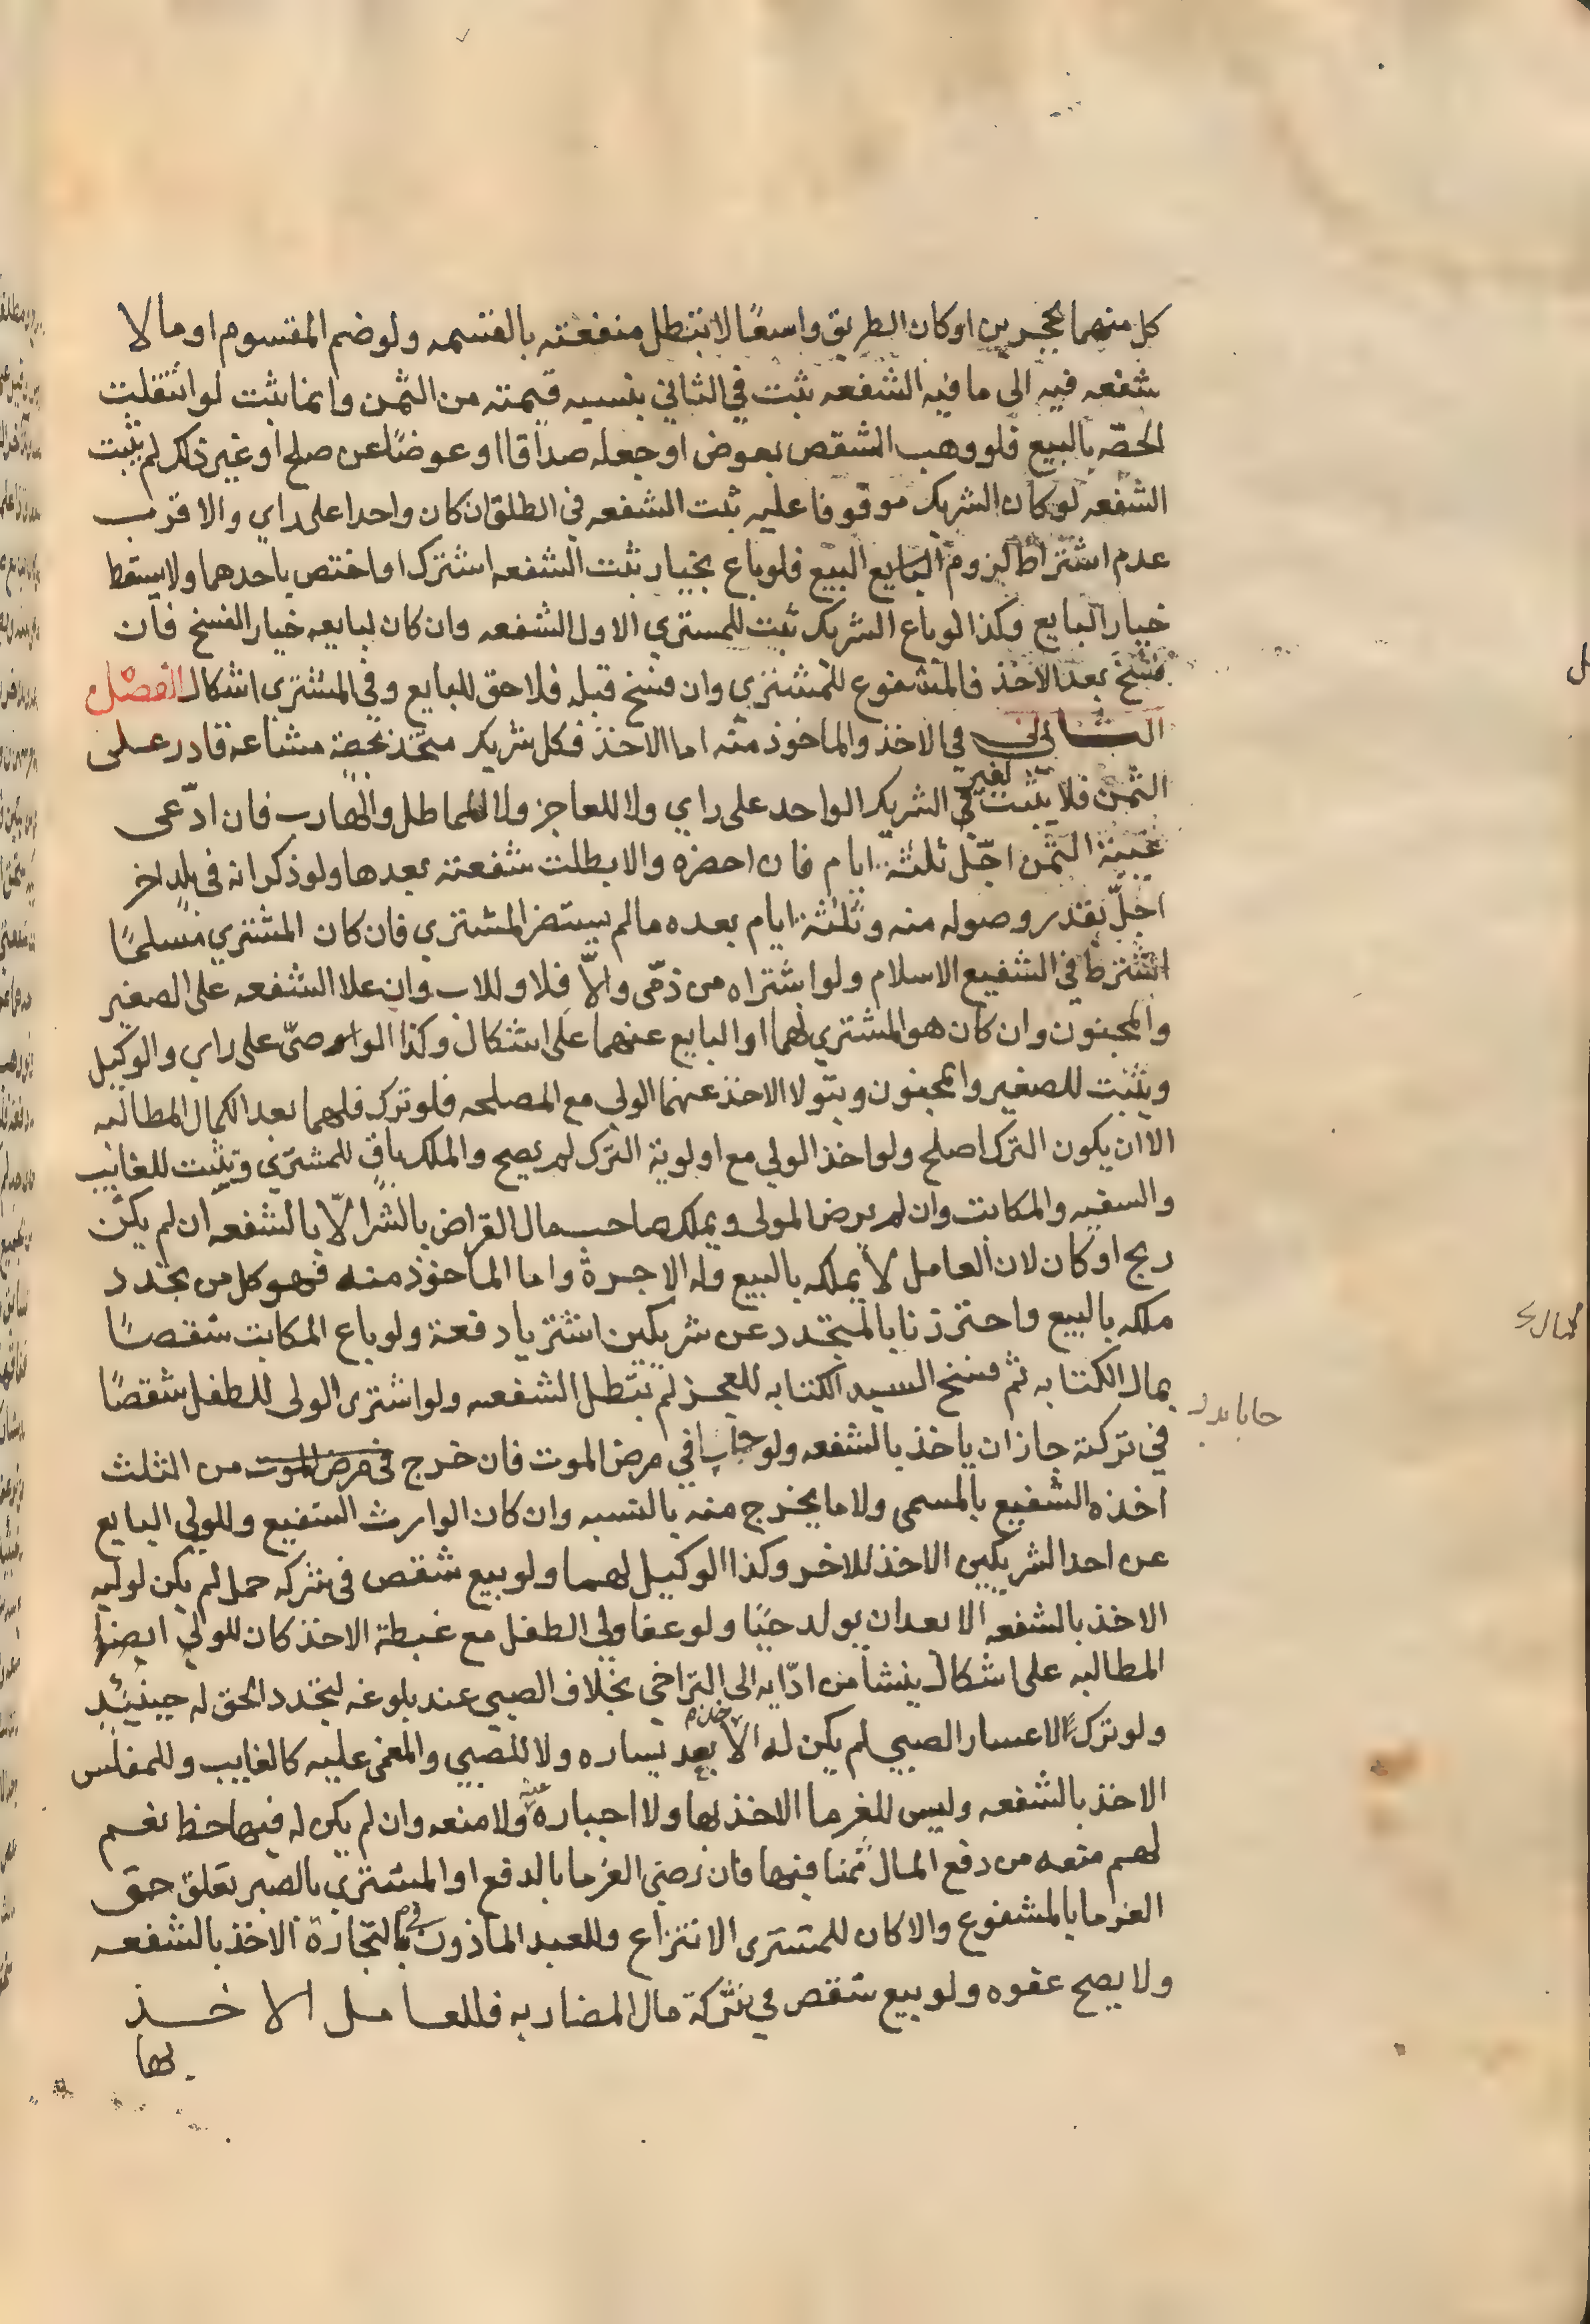 كل منهما بحجرين او كان الطريق واسعًا لا تبطل منفعته بالقسمه ولو ضم المقسوم او ما لا
شفعه فيه الى ما فيه الشفعه ثبت في الثاني بنسبه قيمته من الثمن وانما يثبت لو انتقلت
الحصّه بالبيع فلو وهب الشقص بعوض او جعله صداقا او عوضًا عن صلح او غير ذلك لم تثبت
الشفعه لو كان الشريك موقوفا عليه ثبت الشفعه في الطلق ان كان واحدا على راي والاقرب
عدم اشتراط لزوم البايع البيع فلو باع بخيار ثبت الشفعه اشترك او اختص باحدهما ولا يسقط
خيار البايع وكذا لو باع الشريك ثبت للمشتري الاول الشفعه وان كان لبايعه خيار الفسخ فان
فسخ بعد الاخذ فالمشفوع للمشتري وان فسخ قبله فلا حق للبايع وفي المشتري اشكال الفصل
الثاني في الاخذ والماخوذ منه اما الاخذ فكل شريك متحد بحصة مشاعه قادر على
الثمن فلا يثبت لغير الشريك الواحد على راي ولا للعاجز ولا المماطل والهارب فان ادّعى
غيبة الثمن اجّل ثلثة ايام فان احضره والا بطلت شفعته بعدها ولو ذكر انه في بلد اخر
اجلّ بقدر وصوله منه وثلثة ايام بعده ما لم يستضر المشتري فان كان المشتري مسلمًا
اشترط في الشفيع الاسلام ولو اشتراه من ذمّى والّا فلا وللاب وان علا الشفعه على الصغير
والمجنون وان كان هو المشتري لهما او البايع عنهما على اشكال وكذا الوصىّ على راي والوكيل
ويثبت للصغير والمجنون ويتولا الاخذ عنهما الولي مع المصلحه فلو ترك فلهما بعد الكمال المطالبه
الا ان يكون الترك اصلح ولو اخذ الولي مع اولوية الترك لم يصح والملك باقٍ للمشتري ويثبت للغايب
والسفيه والمكاتب وان لم يرض المولى ويملك صاحب مال القراض بالشرا لّا بالشفعه ان لم يكن
ربح او كان لان العامل لا يملكه بالبيع وله الاجرة واما الماخوذ منه فهو كل من تجدد
ملكه بالبيع واحترزنا بالمتجدد عن شريكين اشتريا دفعة ولو باع المكاتب شقصًا
بمال الكتابه ثم فسخ السيد الكتابه للعجز لم تبطل الشفعه ولو اشترى الولى للطفل شقصًا
في تركته جاز ان ياخذ بالشفعه ولو حابا في مرض الموت فان خرج في مرض الموت من الثلث
اخذه الشفيع بالمسمى ولا ما يخرج منه بالنسبه وان كان الوارث الشفيع وللولي البايع
عن احد الشريكين الاخذ للاخر وكذا الوكيل لهما ولو بيع شقص في شركه حمل لم يكن لوليه
الاخذ بالشفعه الا بعد ان يولد حيًا ولو عفا ولي الطفل مع غبطة الاخذ كان للولي ايضا
المطالبه على اشكال ينشا من ادّايه الى التراخي بخلاف الصبي عند بلوغه لتجدد الحق له حينيئذ
ولو ترك الاعسار الصبي لم يكن له الا بعد يساره ولا للصبي والمغمى عليه كالغايب وللمفلس
الاخذ بالشفعه وليس للغرما الاخذ بها ولا اجباره عليه ولا منعه وان لم يكن له فيها حظ نعم
لهم منعه من دفع المال ثمنا فيها فان رضى الغرما بالدفع او المشتري بالصبر تعلق حق
الغرما بالمشفوع والا كان للمشترى الانتزاع وللعبد الماذون في التجارة الاخذ بالشفعه
ولا يصح عفوه ولو بيع شقص في شركة مال المضاربه فللعامل الاخذ
بها